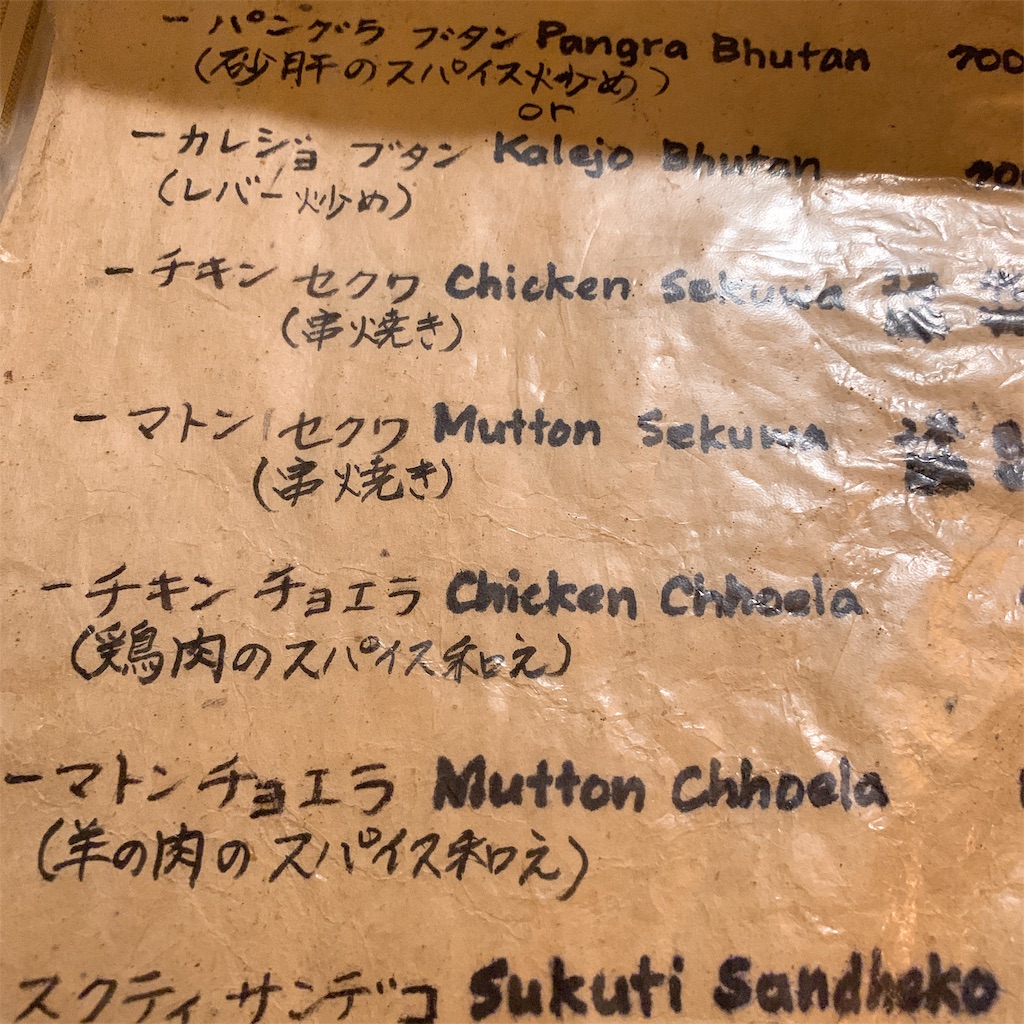 ー パングラ ブタン Pangra Bhutan 700
(砂肝のスパイス炒め)
or
ー カレジョ ブタン Kalejo Bhutan
(レバー炒め)
ー チキン セクワ Chicken Sekuwa
(串焼き)
ー マトン セクワ Mutton Sekuwa
(串焼き)
ー チキン チョエラ Chicken Chhoela
(鶏肉のスパイス和え)
ー マトンチョエラ Mutton Chhoela
(羊の肉のスパイス和え)
スクティ サンデコ Sukuti Sandheko